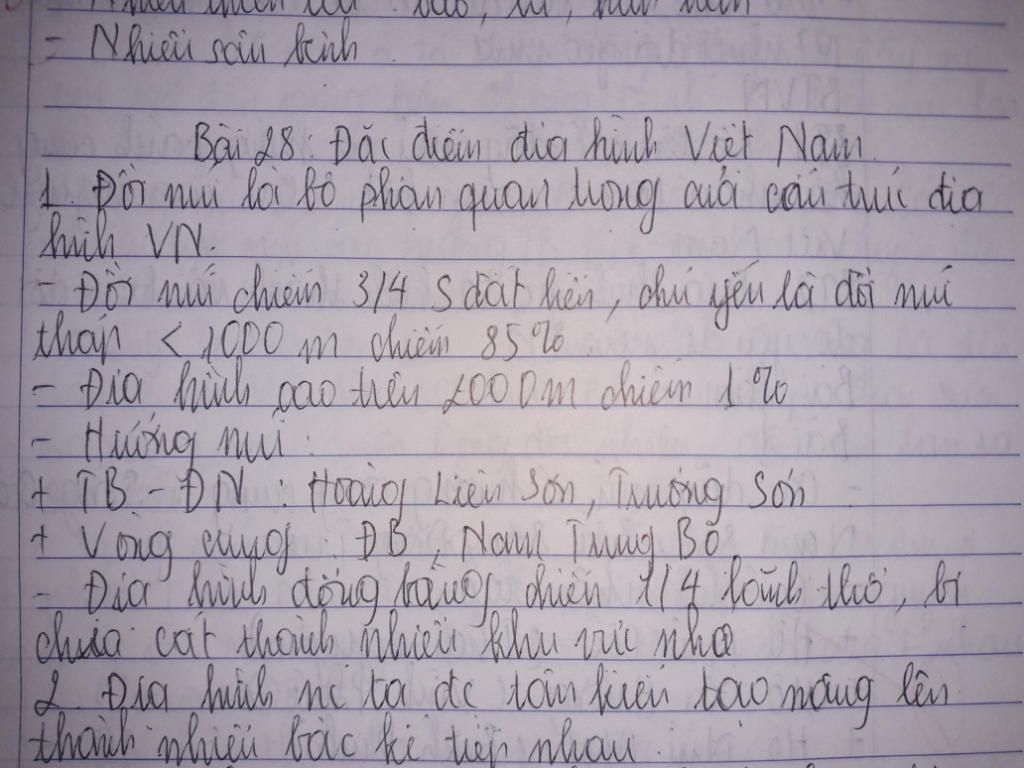 - Nhiều sâu bệnh.
Bài 28: Đặc điểm địa hình Việt Nam
1. Đồi núi là bộ phận quan trọng của cấu trúc địa
hình VN.
- Đồi núi chiếm 3/4 S đất liền, chủ yếu là đồi núi
thấp < 1000 m chiếm 85%
- Địa hình cao trên 2000m chiếm 1%
- Hướng núi:
+ TB - ĐN: Hoàng Liên Sơn, Trường Sơn
+ Vòng cung: ĐB, Nam Trung Bộ
- Địa hình đồng bằng chiếm 1/4 lãnh thổ, bị
chia cắt thành nhiều khu vực nhỏ
2. Địa hình nc ta đc tân kiến tạo nâng lên
thành nhiều bậc kế tiếp nhau.